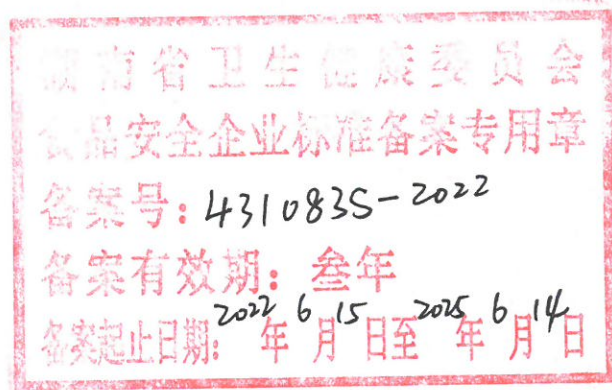 湖南省卫生健康委员会
食品安全企业标准备案专用章
备案号：4310835-2022
备案有效期：叁年
备案起止日期：2022年6月15日至2025年6月14日